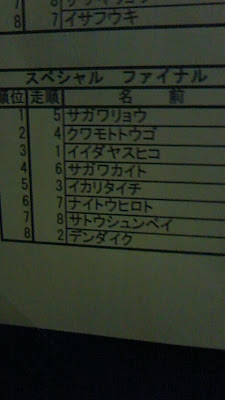 8 7 イサフウキ
スペシャル ファイナル
順位 走順 名 前
1 5 サガワリョウ
2 4 クワモトトウゴ
3 1 イイダヤスヒコ
4 6 サガワカイト
5 3 イカリタイチ
6 7 ナイトウヒロト
7 8 サトウシュンペイ
8 2 デンダイク